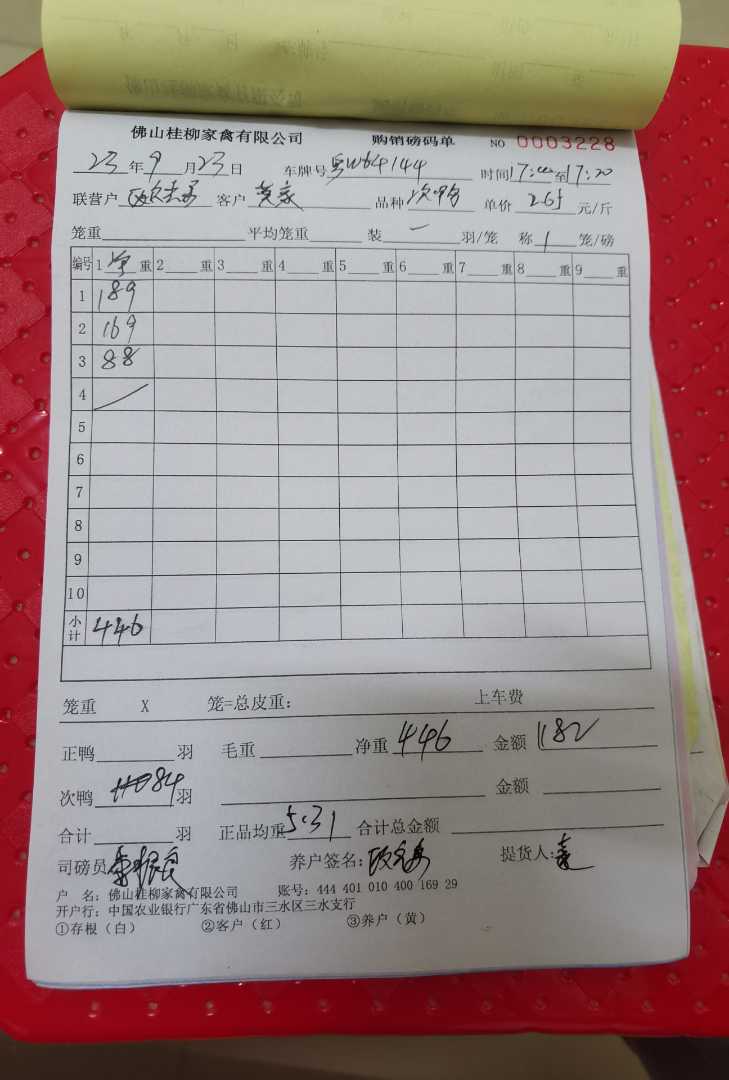 佛山桂柳家禽有限公司 购销磅码单 NO 0003228
23年9月23日 车牌号粤W64144 时间17:00至17:20
联营户 客户 黄家 品种 次鸭 单价 2.65 元/斤
笼重 平均笼重 装 一 羽/笼 称 1 笼/磅
编号 1 净 重 2 重 3 重 4 重 5 重 6 重 7 重 8 重 9 重
1 189
2 169
3 88
4
5
6
7
8
9
10
小计 446
笼重 X 笼=总皮重: 上车费
正鸭 羽 毛重 净重 446 金额 1182
次鸭 84 羽 金额
合计 羽 正品均重 5.31 合计总金额
司磅员 养户签名: 提货人:
户 名: 佛山桂柳家禽有限公司 账号: 444 401 010 400 169 29
开户行: 中国农业银行广东省佛山市三水区三水支行
①存根(白) ②客户(红) ③养户(黄)